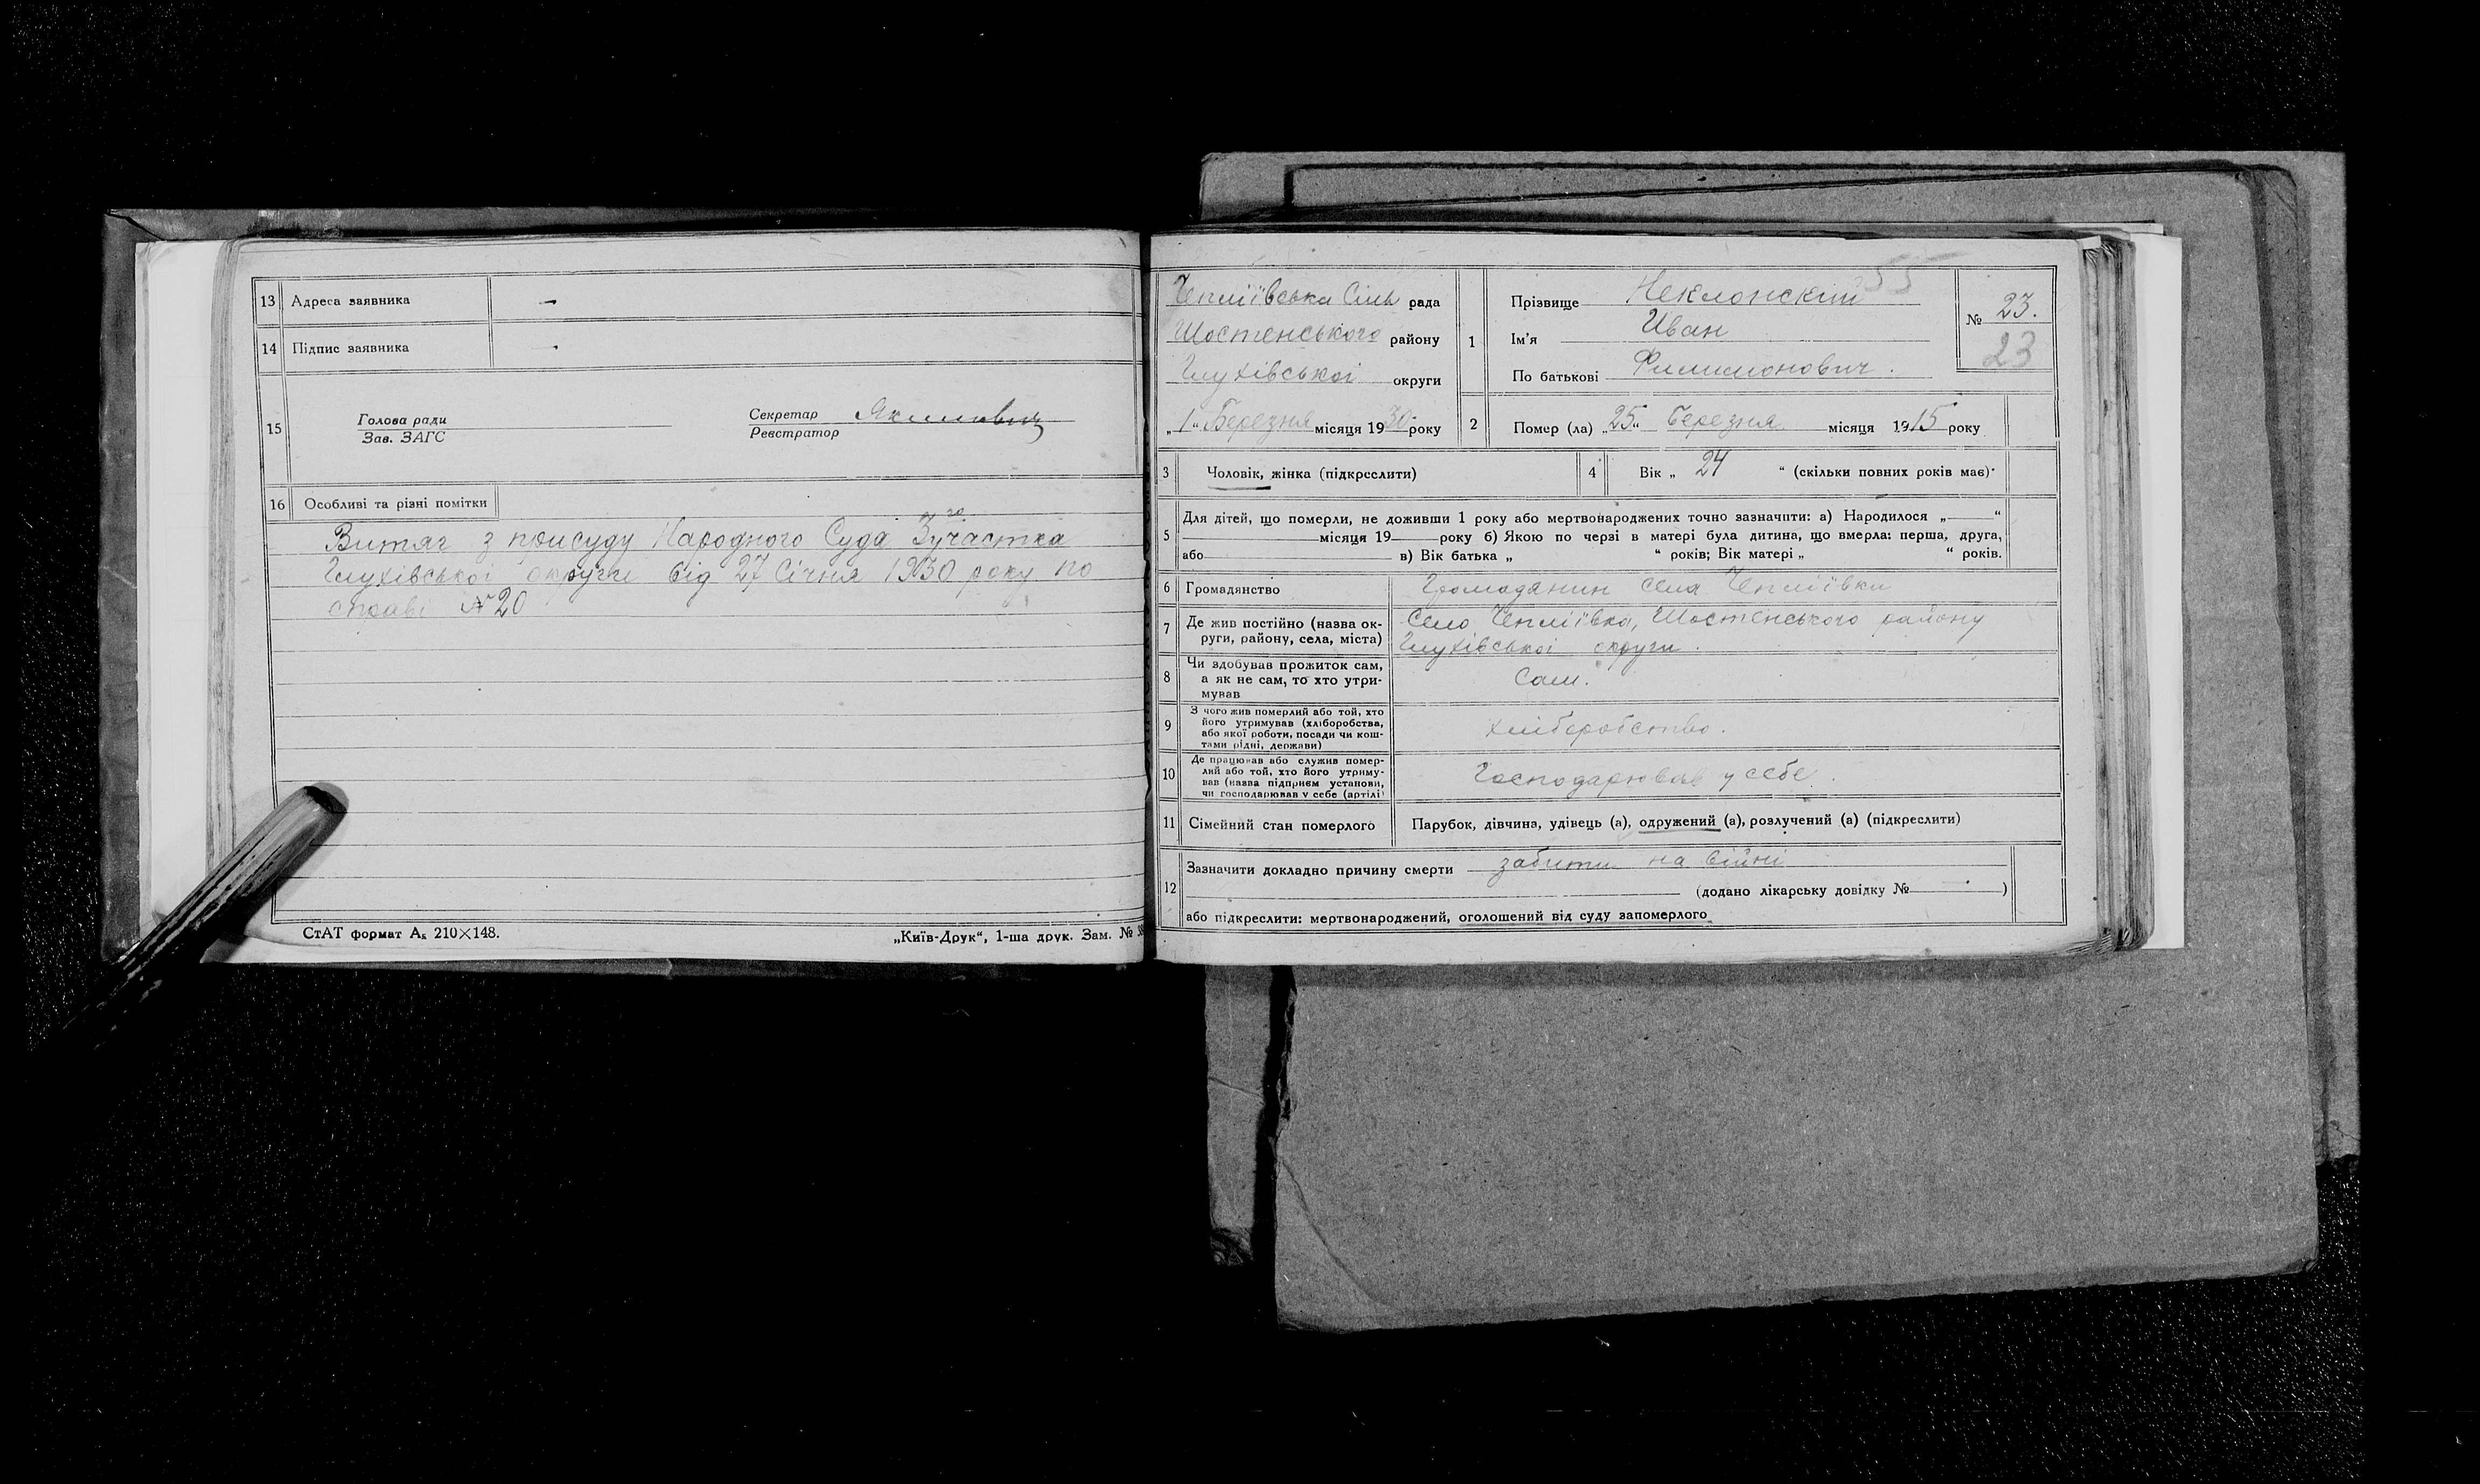 13 Адреса заявника –
14 Підпис заявника
15 Голова ради Секретар Якимович
Зав. ЗАГС Реєстратор
16 Особливі та різні помітки
Витяг з присуду Народного Суда 3го участка
Глухівської округи від 27 Січня 1930 року по
справі № 20
СтАТ формат А5 210×148.
„Київ-Друк“, 1-ша друк. Зам. №
55
Чепліївська Сіль рада
Шостенського району
Глухівської округи
„1“ Березня місяця 1930 року
1 Прізвище Неклонский
Ім'я Иван
По батькові Филимонович.
№ 23.
23
2 Помер (ла) „25“ березня місяця 1915 року
3 Чоловік, жінка (підкреслити)
4 Вік „ 24 “ (скільки повних років має)
5 Для дітей, що померли, не доживши 1 року або мертвонароджених точно зазначити: а) Народилося „ “
місяця 19 року б) Якою по черзі в матері була дитина, що вмерла: перша, друга,
або в) Вік батька „ “ років; Вік матері „ “ років.
6 Громадянство Громадянин села Чепліївки
7 Де жив постійно (назва ок-
руги, району, села, міста)
Село Чепліївка, Шостенського району
Глухівської округи.
8 Чи здобував прожиток сам,
а як не сам, то хто утри-
мував
Сам.
9 З чого жив померлий або той, хто
його утримував (хліборобства,
або якої роботи, посади чи кош-
тами рідні, держави)
хліборобство.
10 Де працював або служив помер-
лий або той, хто його утриму-
вав (назва підприєм установи,
чи господарював у себе (артілі)
Господарював у себе.
11 Сімейний стан померлого Парубок, дівчина, удівець (а), одружений (а), розлучений (а) (підкреслити)
12 Зазначити докладно причину смерти забити на війні
(додано лікарську довідку № )
або підкреслити: мертвонароджений, оголошений від суду запомерлого